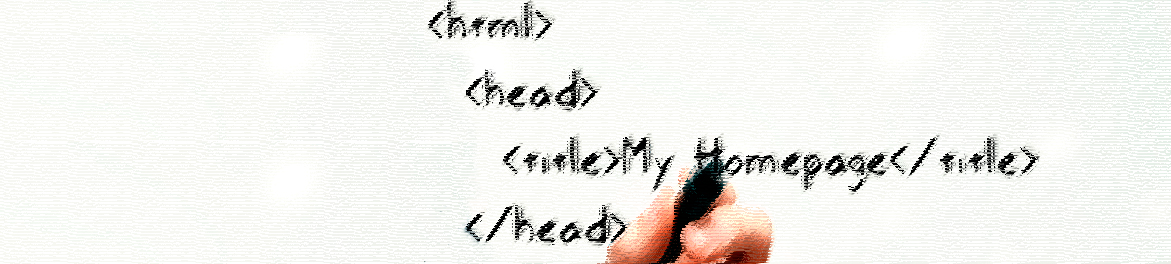 <html>
<head>
<title>My Homepage</title>
</head>